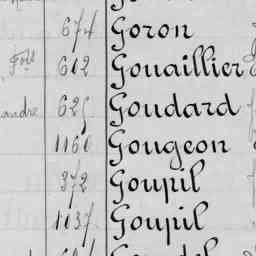 674 Goron
Fois 612 Gouaillier
andre 625 Goudard
1160 Gougeon
372 Goupil
1137 Goupil